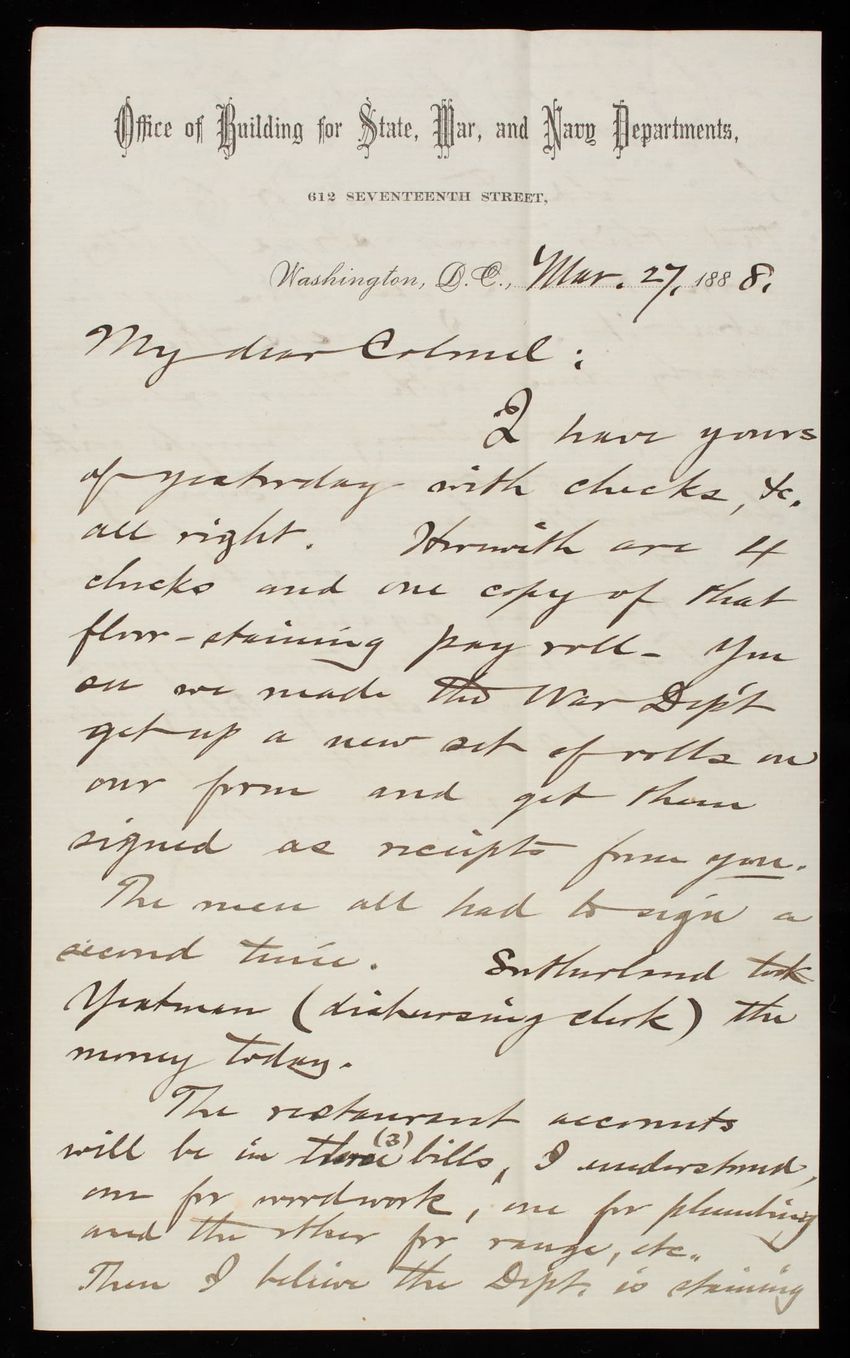 Office of Building for State, War, and Navy Departments,
612 SEVENTEENTH STREET,
Washington, D. C., Mar. 27, 1888.
My dear Colonel:
I have yours
of yesterday with checks, &c.
all right. Herewith are 4
checks and one copy of that
floor-staining pay roll- You
see we made the War Dep't
get up a new set of rolls on
our form and get them
signed as receipts from you.
The men all had to sign a
second time. Sutherland took
Yeatman (disbursing clerk) the
money today.
The restaurant accounts
will be in three (3) bills, I understand,
one for woodwork, one for plumbing
and the other for range, etc.
Then I believe the Dept. is staining